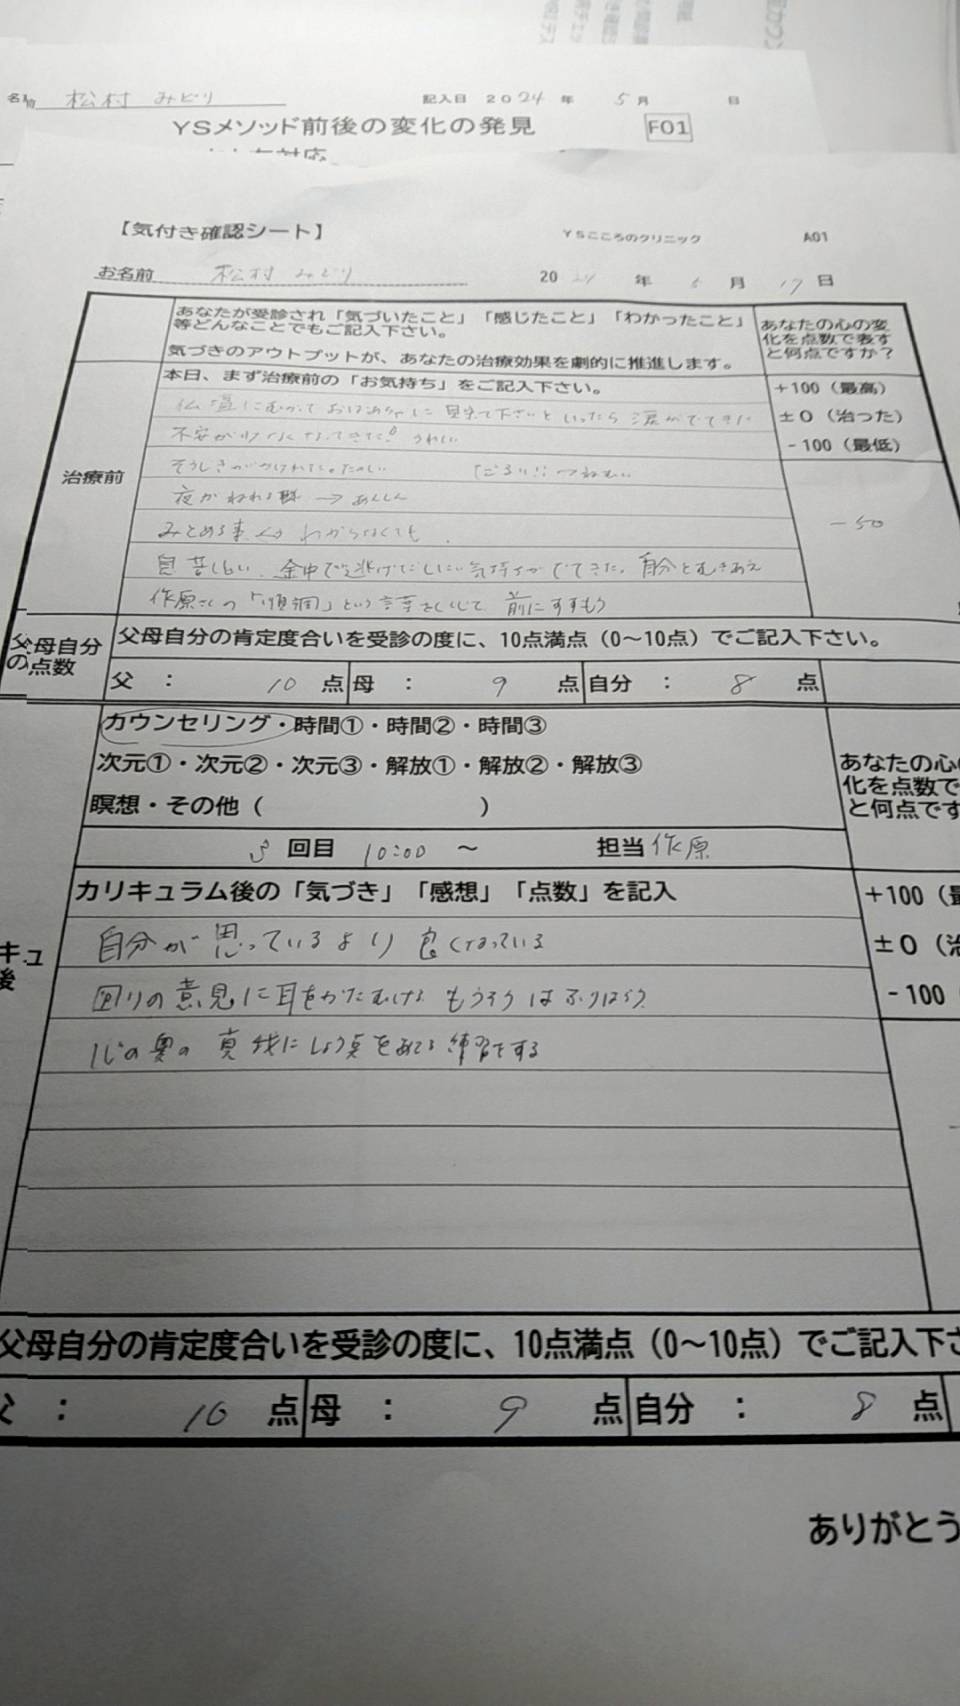 名前 松村 みどり 記入日 2024 年 5月 日
YSメソッド前後の変化の発見 F01
【気付き確認シート】 YSこころのクリニック A01
お名前 松村 みどり 20 年 月 17 日
あなたが受診され「気づいたこと」「感じたこと」「わかったこと」
等どんなことでもご記入下さい。
気づきのアウトプットが、あなたの治療効果を劇的に推進します。
あなたの心の変
化を点数で表す
と何点ですか？
治療前
本日、まず治療前の「お気持ち」をご記入下さい。
+100（最高）
±0（治った）
-100（最低）
仏壇にむかっておばあちゃんに見守って下さいといったら涙がでてきた
不安が少なくなってきた！うれしい
夜がねれる様 → あんしん
みとめる事 わからなくても
息苦しい、途中で逃げだしたい気持ちがでてきた。自分とむきあえ
作原さんの「順調」という言葉をしんじて 前にすすもう
-50
父母自分
の点数
父母自分の肯定度合いを受診の度に、10点満点（0～10点）でご記入下さい。
父 ： 10 点 母 ： 9 点 自分 ： 8 点
カウンセリング・時間①・時間②・時間③
次元①・次元②・次元③・解放①・解放②・解放③
瞑想・その他（ ）
あなたの心
化を点数で
と何点です
回目 10:00 ～ 担当 作原
カリキュラム後の「気づき」「感想」「点数」を記入
+100（最
±0（治
-100（
キュ
後
自分が思っているより良くなっている
回りの意見に耳をかたむける もうそうはふりはらう
心の奥の真我にしょう点をあてる練習をする
父母自分の肯定度合いを受診の度に、10点満点（0～10点）でご記入下さ
父 ： 10 点 母 ： 9 点 自分 ： 8 点
ありがとう